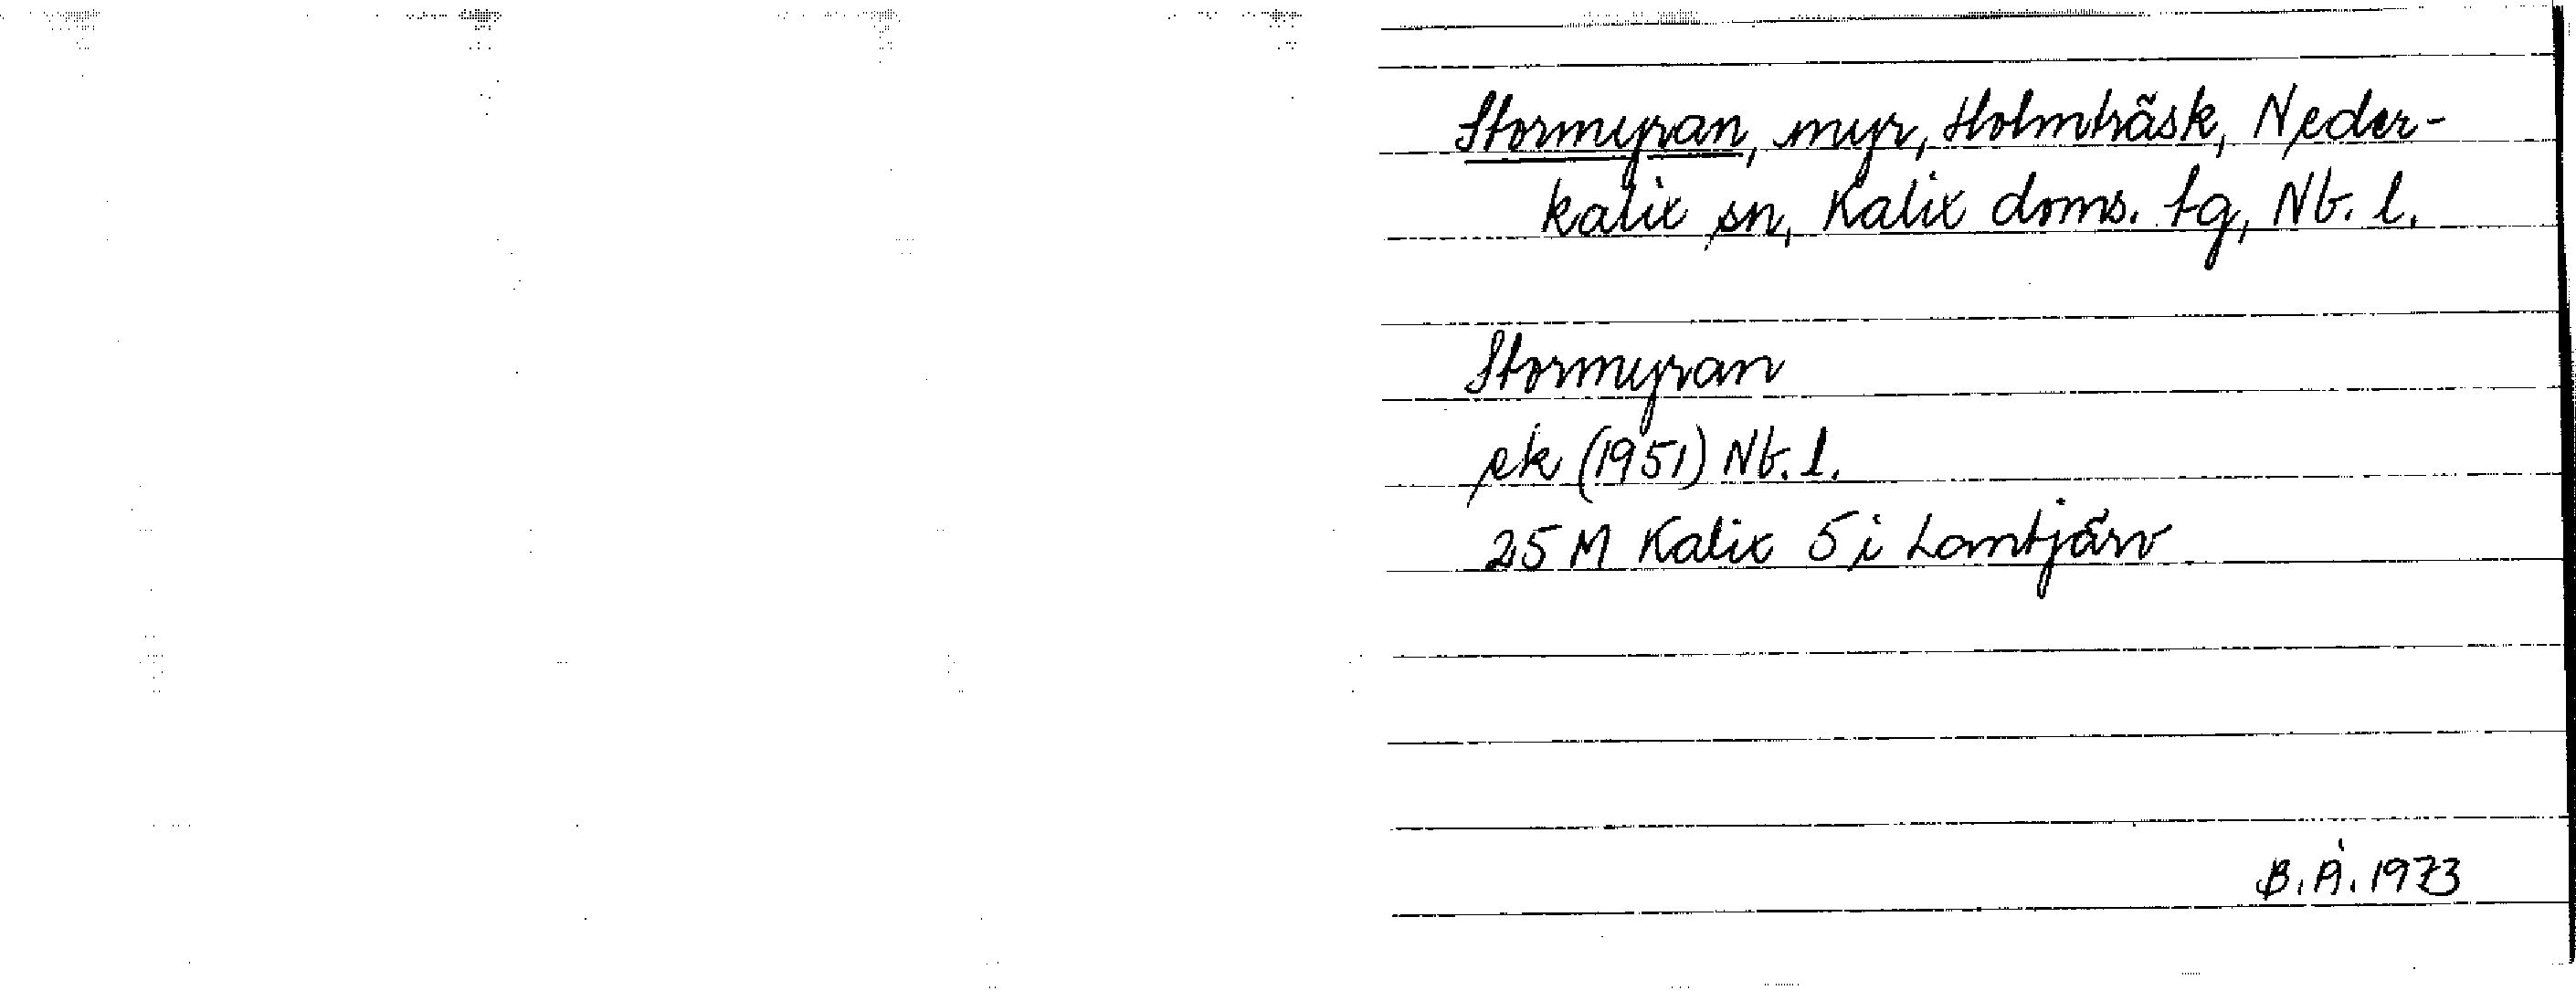 Stormyran, myr, Holmträsk, Neder-
kalix sn, Kalix doms. tg, Nb. l.
Stormyran
ek (1951) Nb. l.
25 M Kalix 5 i Lomtjärv
B.Å. 1973